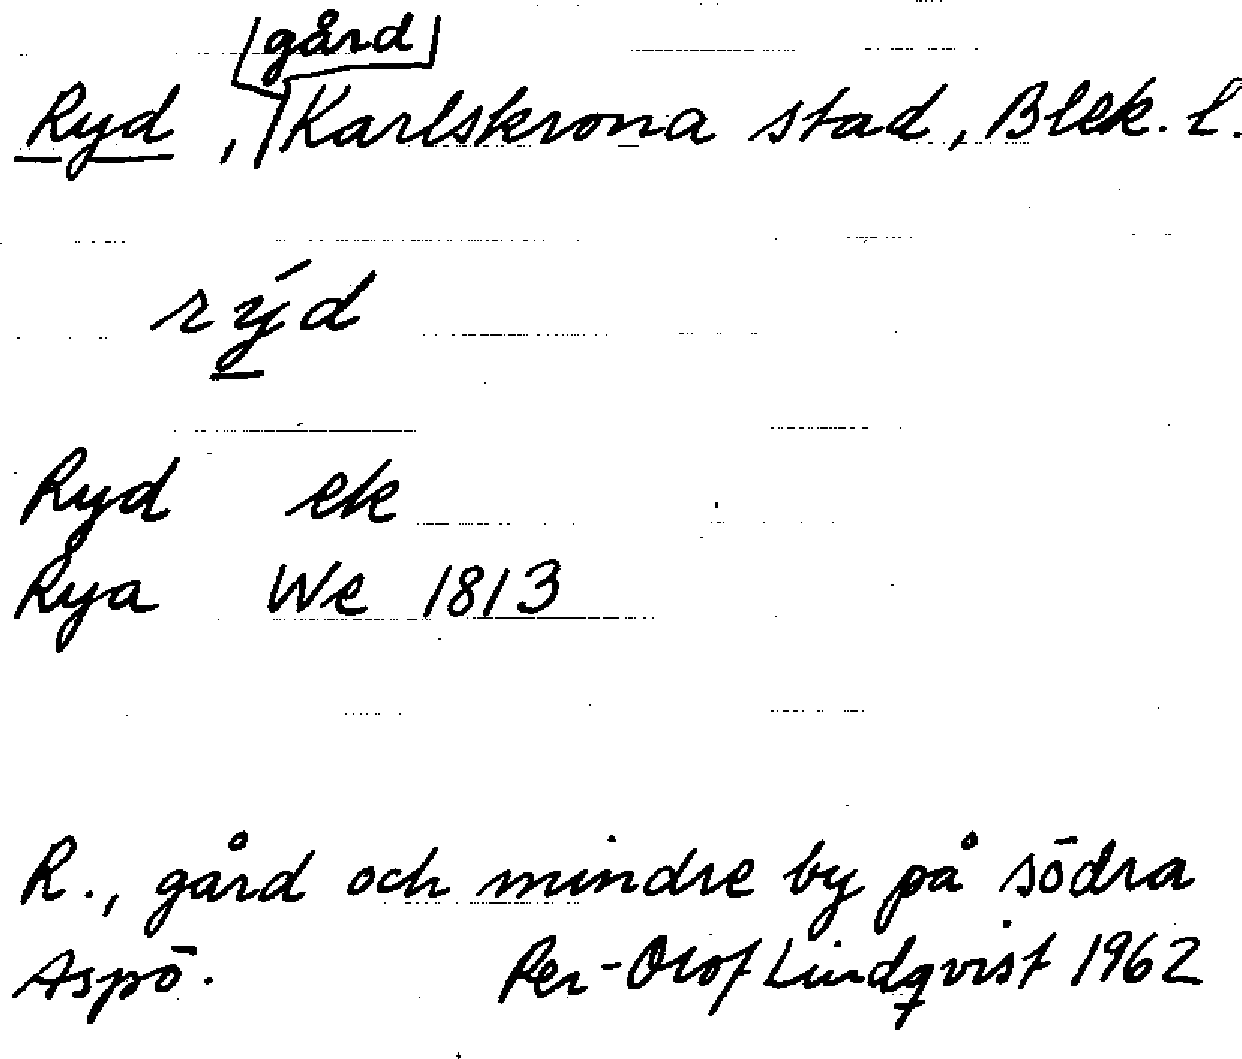 Ryd, gård Karlskrona stad, Blek. l.
rýd
Ryd ek
Rya We 1813
R., gård och mindre by på södra
Aspö. Per-Olof Lindqvist 1962